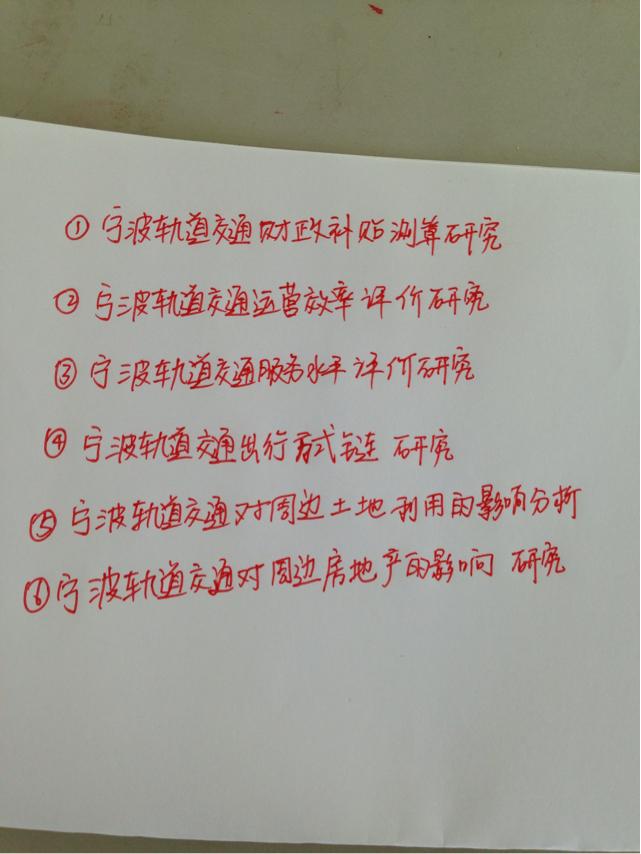 ① 宁波轨道交通财政补贴测算研究
② 宁波轨道交通运营效率评价研究
③ 宁波轨道交通服务水平评价研究
④ 宁波轨道交通出行方式链研究
⑤ 宁波轨道交通对周边土地利用的影响分析
⑥ 宁波轨道交通对周边房地产的影响研究